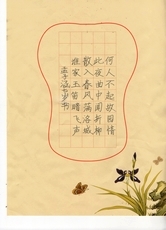 谁家玉笛暗飞声
散入春风满洛城
此夜曲中闻折柳
何人不起故园情